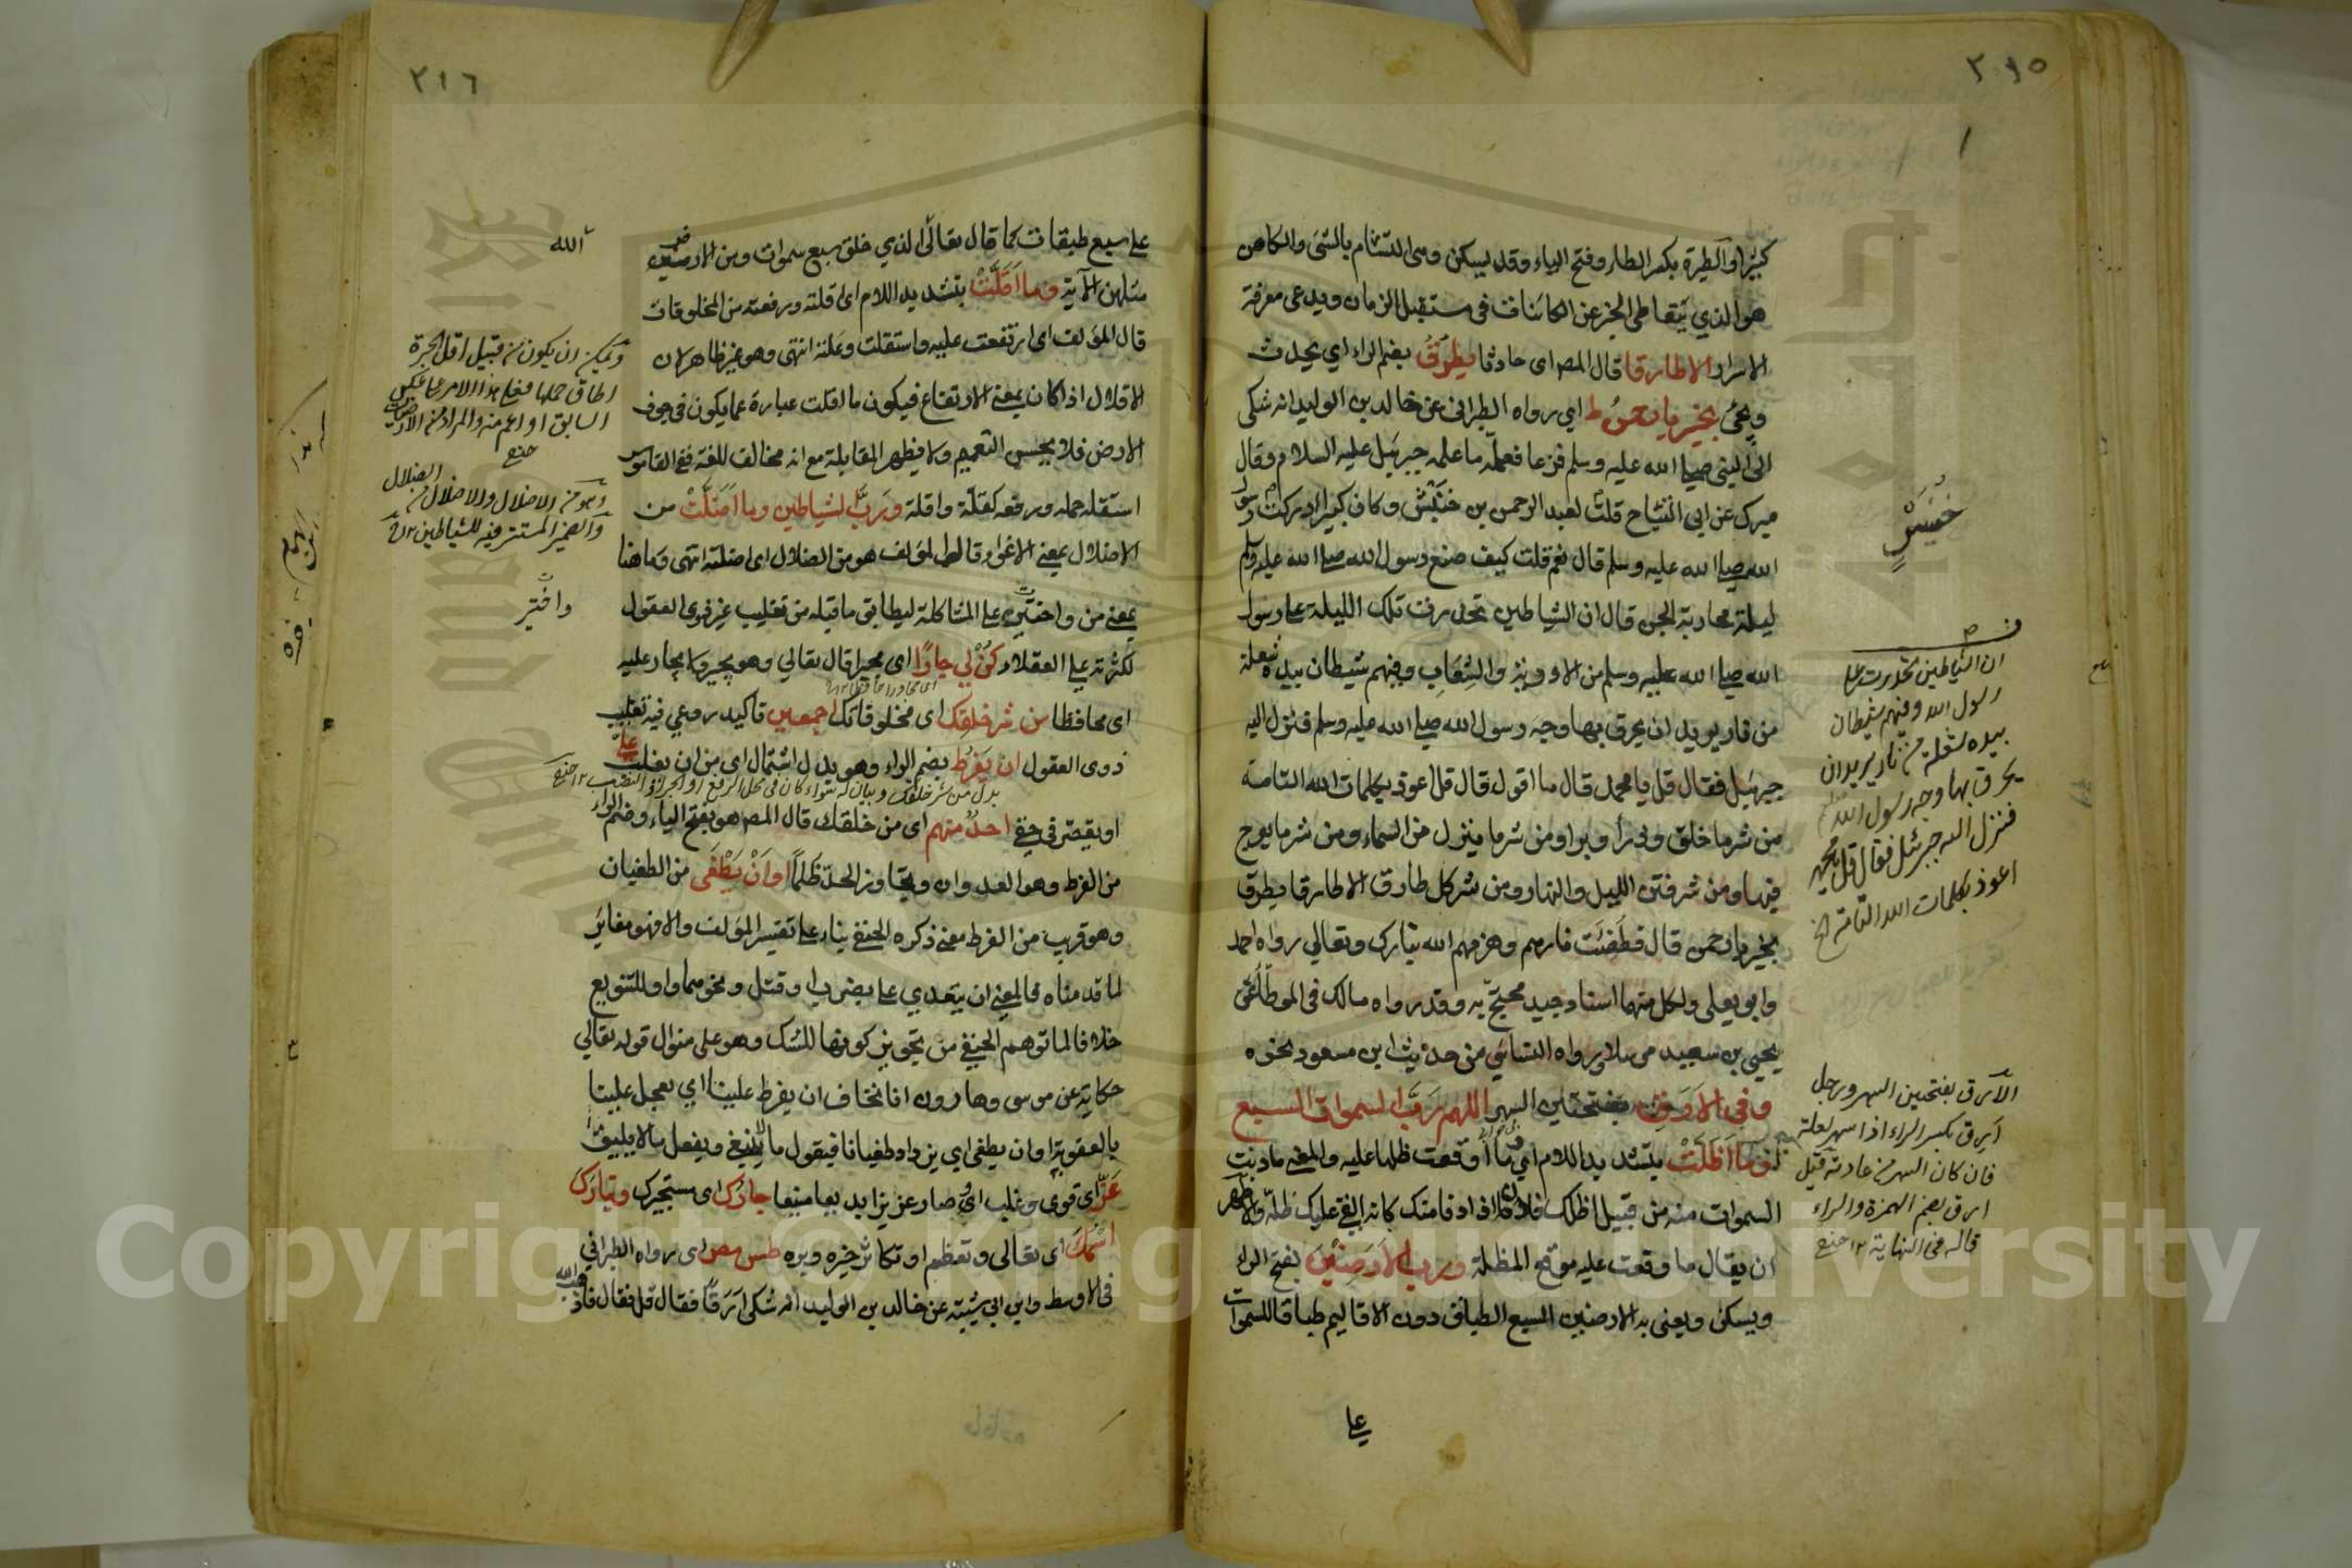 ٢١٥
كثيرا والطيرة بكسر الطاء وفتح الياء وقد يسكن وهى التشام بالشئ والكاهن
هو الذي يتعاطى الخبر عن الكائنات فى مستقبل الزمان ويدعى معرفة
الاسرار الا طارقا قال المص اى حادثا يطرق بضم الراء اي يحدث
ويجئ بخير يا رحمن ط اي رواه الطبرانى عن خالد بن الوليد انه شكى
الى النبى صلى الله عليه وسلم فزعا فعلمه ما علمه جبرئيل عليه السلام وقال
ميرك عن ابى التياح قلت لعبد الرحمن بن خنبش وكان كبيرا ادركت رسول
الله صلى الله عليه وسلم قال نعم قلت كيف صنع رسول الله صلى الله عليه وسلم
ليلة محاربة الجن قال ان الشياطين تحدرت تلك الليلة على رسول
الله صلى الله عليه وسلم من الاودية والشعاب وفيهم شيطان بيده شعلة
من نار يريد ان يحرق بها وجه رسول الله صلى الله عليه وسلم فنزل اليه
جبرئيل فقال قل يا محمد قال ما اقول قال قل اعوذ بكلمات الله التامة
من شر ما خلق وذرأ وبرا ومن شر ما ينزل من السماء ومن شر ما يعرج
فيها ومن شر فتن الليل والنهار ومن شر كل طارق الا طارقا يطرق
بخير يا رحمن قال فطفئت نارهم وهزمهم الله تبارك وتعالي رواه احمد
وابو يعلى ولكل منهما اسناد جيد محتج به وقد رواه مالك فى الموطأ عن
يحيى بن سعيد مرسلا ورواه النسائى من حديث ابن مسعود بنحوه
وفى الارق بفتحتين السهر اللهم رب السموات السبع
وما اظلت بتشديد اللام اي ما اوقعت ظلها عليه والمعنى ما دنت
السموات منه من قبيل اظلك فلان اذا دنا منك كانه القى عليك ظله والاظهر
ان يقال ما وقعت عليه موقع المظلة ورب الارضين بفتح الراء
ويسكن ويعنى به الارضين السبع الطباق دون الاقاليم طباقا للسموات
على
ان الشياطين تحدرت على
رسول الله وفيهم شيطان
بيده شعلة من نار يريد ان
يحرق بها وجه رسول الله
فنزل اليه جبرئيل فقال قل يا محمد
اعوذ بكلمات الله التامة الخ
الارق بفتحتين السهر ورجل
ارق بكسر الراء اذا سهر لعلة
فان كان السهر من عادته قيل
ارق بضم الهمزة والراء
قاله فى النهاية ١٢ حنفى
٢١٦
على سبع طبقات كما قال تعالى الذي خلق سبع سموات ومن الارض
مثلهن الآية وما اقلت بتشديد اللام اى اقلته ورفعته من المخلوقات
قال المؤلف اى ارتفعت عليه واستقلت وعلته انتهى وهو غير ظاهر لان
الاقلال اذا كان بمعنى الارتفاع فيكون ما اقلت عبارة عما يكون فى جوف
الارض فلا يحسن التعميم ولا يظهر المقابلة مع انه مخالف للغة ففى القاموس
استقله حمله ورفعه كقله واقله ورب الشياطين وما اضلت من
الاضلال بمعنى الاغواء وقال المؤلف هو من الضلال اى اضلته انتهى وما هنا
بمعنى من واختير على المشاكلة ليطابق ما قبله من تغليب غير ذوى العقول
لكثرته على العقلاء كن لي جارا اى مجيرا قال تعالي وهو يجير ولا يجار عليه
اى محافظا من شر خلقك اى مخلوقاتك اجمعين تاكيد روعي فيه تغليب
ذوى العقول ان يفرط بضم الراء وهو بدل اشتمال اى من ان يغلب على
او يقصر فى حقى احد منهم اى من خلقك قال المص هو بفتح الياء وضم الراء
من الفرط وهو العدوان وتجاوز الحد ظلما او ان يطغى من الطغيان
وهو قريب من الفرط معنى ذكره الحنفى بناء على تفسير المؤلف والا فهو مغاير
لما قدمناه فالمعنى ان يتعدي على بضرب او قتل ونحوهما واو للتنويع
خلافا لما توهم الحنفى من تجويز كونها للشك وهو على منوال قوله تعالي
حكاية عن موسى وهارون اننا نخاف ان يفرط علينا اي يعجل علينا
بالعقوبة او ان يطغى اي يزداد طغيانا فيقول ما لا ينبغى ويفعل ما لا يليق
عز اى قوى وغلب اى صار عزيزا بديعا منيعا جارك اى مستجيرك وتبارك
اسمك اى تعالى وتعظم او تكاثر خيره وبره طس مص اى رواه الطبرانى
فى الاوسط وابن ابى شيبة عن خالد بن الوليد انه شكى ارقا فقال قل فقال فاذهب الله
الله
ويمكن ان يكون من قبيل اقل الجرة
اطاق حملها فعلى هذا الامر على عكس
السابق او اعم منه والمراد من الارض
حنفى
والضمير المستتر فيه للشياطين ١٢
واختير
بدل من شر خلقك وبيان له سواء كان فى محل الرفع او الجر او النصب ١٢ حنفى
Copyright © King Saud University